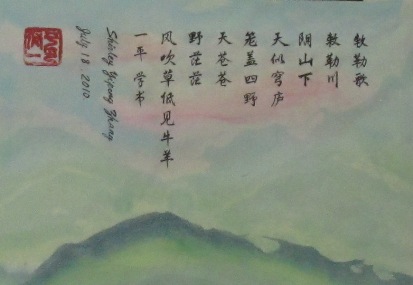 敕勒歌
敕勒川
阴山下
天似穹庐
笼盖四野
天苍苍
野茫茫
风吹草低见牛羊
一平 学书
Shirley Yiping Zhang
July 18 2010